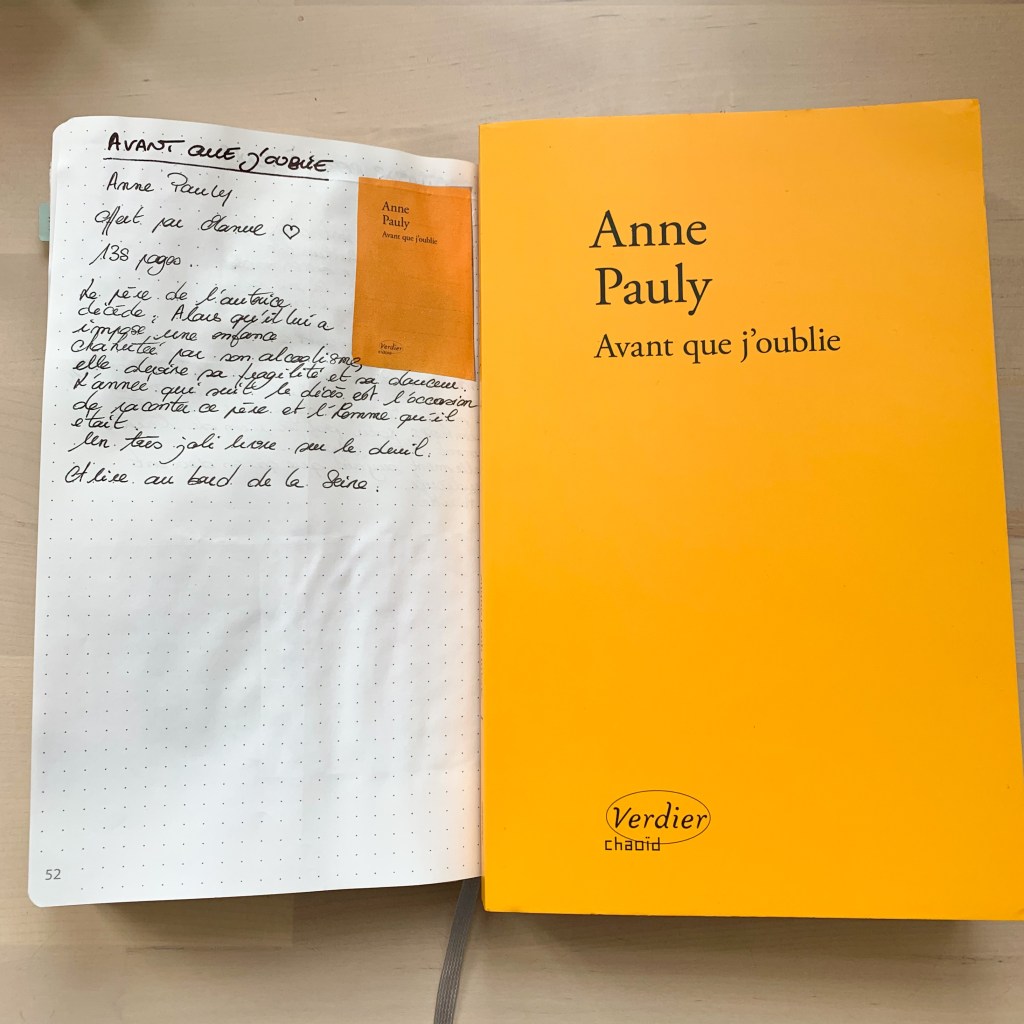 AVANT QUE J'OUBLIE
Anne Pauly
offert par ♡
138 pages.
Le père de l'autrice
décède. Alors qu'il lui a
imposé une enfance
chahutée par son alcoolisme,
elle devine sa fragilité et sa douceur.
L'année qui suit le décès est l'occasion
de raconter ce père et l'homme qu'il
était.
Un très joli livre sur le deuil.
au bord de la Seine.
52
Anne
Pauly
Avant que j'oublie
Verdier
chaoïd
Anne
Pauly
Avant que j'oublie
Verdier
chaoïd